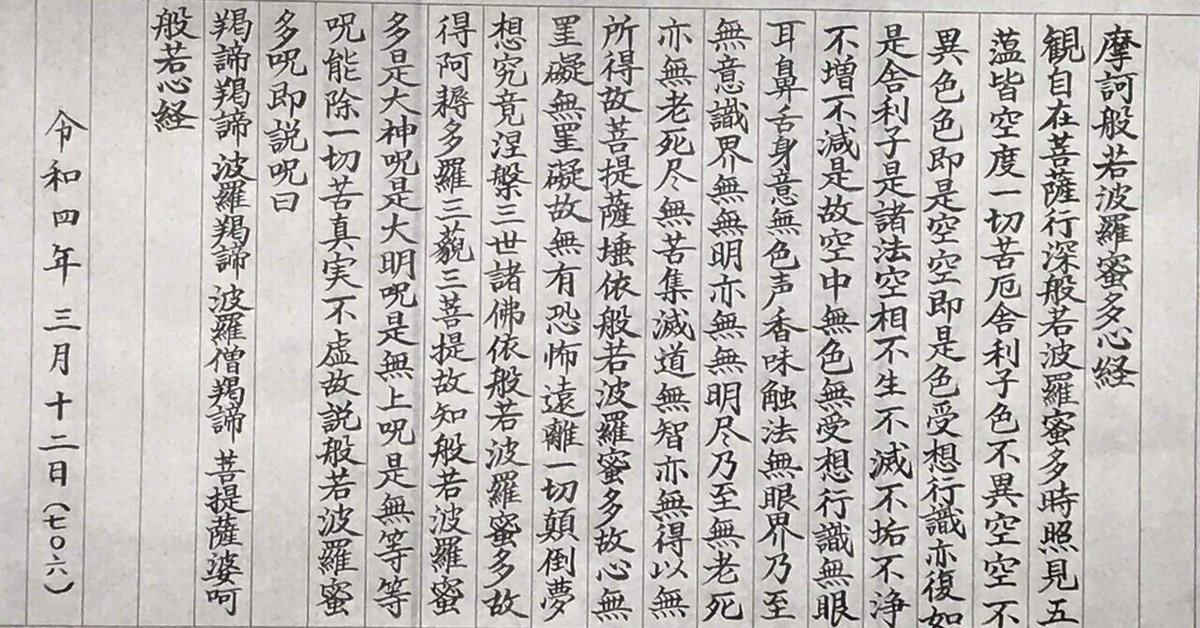 摩訶般若波羅蜜多心経
観自在菩薩行深般若波羅蜜多時照見五
蕰皆空度一切苦厄舎利子色不異空空不
異色色即是空空即是色受想行識亦復如
是舎利子是諸法空相不生不滅不垢不浄
不増不減是故空中無色無受想行識無眼
耳鼻舌身意無色声香味触法無眼界乃至
無意識界無無明亦無無明尽乃至無老死
亦無老死尽無苦集滅道無智亦無得以無
所得故菩提薩埵依般若波羅蜜多故心無
罣礙無罣礙故無有恐怖遠離一切顛倒夢
想究竟涅槃三世諸佛依般若波羅蜜多故
得阿耨多羅三藐三菩提故知般若波羅蜜
多是大神呪是大明呪是無上呪是無等等
呪能除一切苦真実不虚故説般若波羅蜜
多呪即説呪曰
羯諦羯諦 波羅羯諦 波羅僧羯諦 菩提薩婆呵
般若心経
令和四年三月十二日(七〇六)